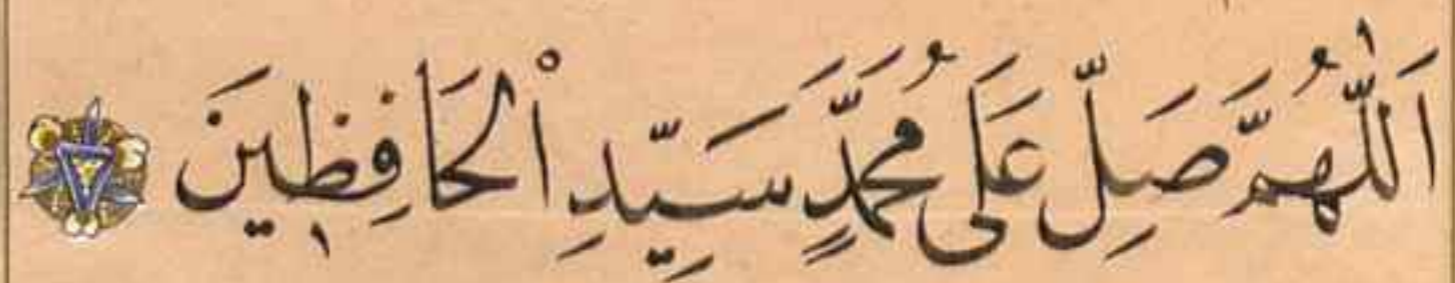 اَللّٰهُمَّ صَلِّ عَلَى مُحَمَّدٍ سَيِّدِ الْحَافِظِينَ